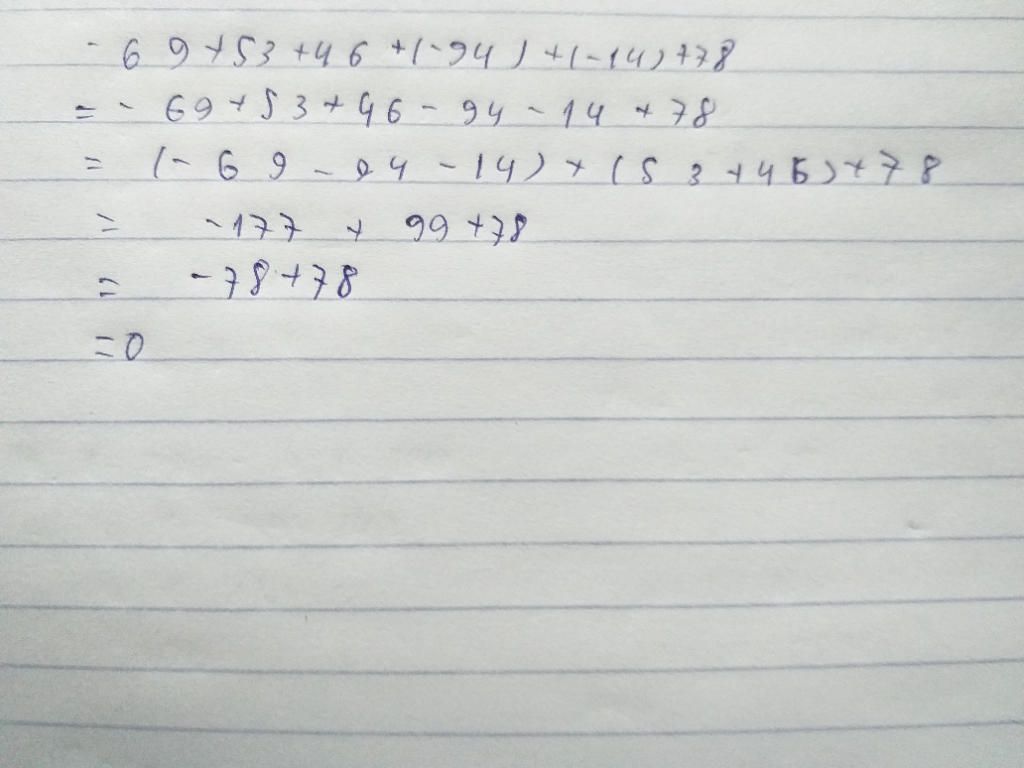 - 69+53+46+(-94)+(-14)+78
= - 69+53+46-94-14+78
= (-69-94-14)+(53+46)+78
= -177+99+78
= -78+78
=0